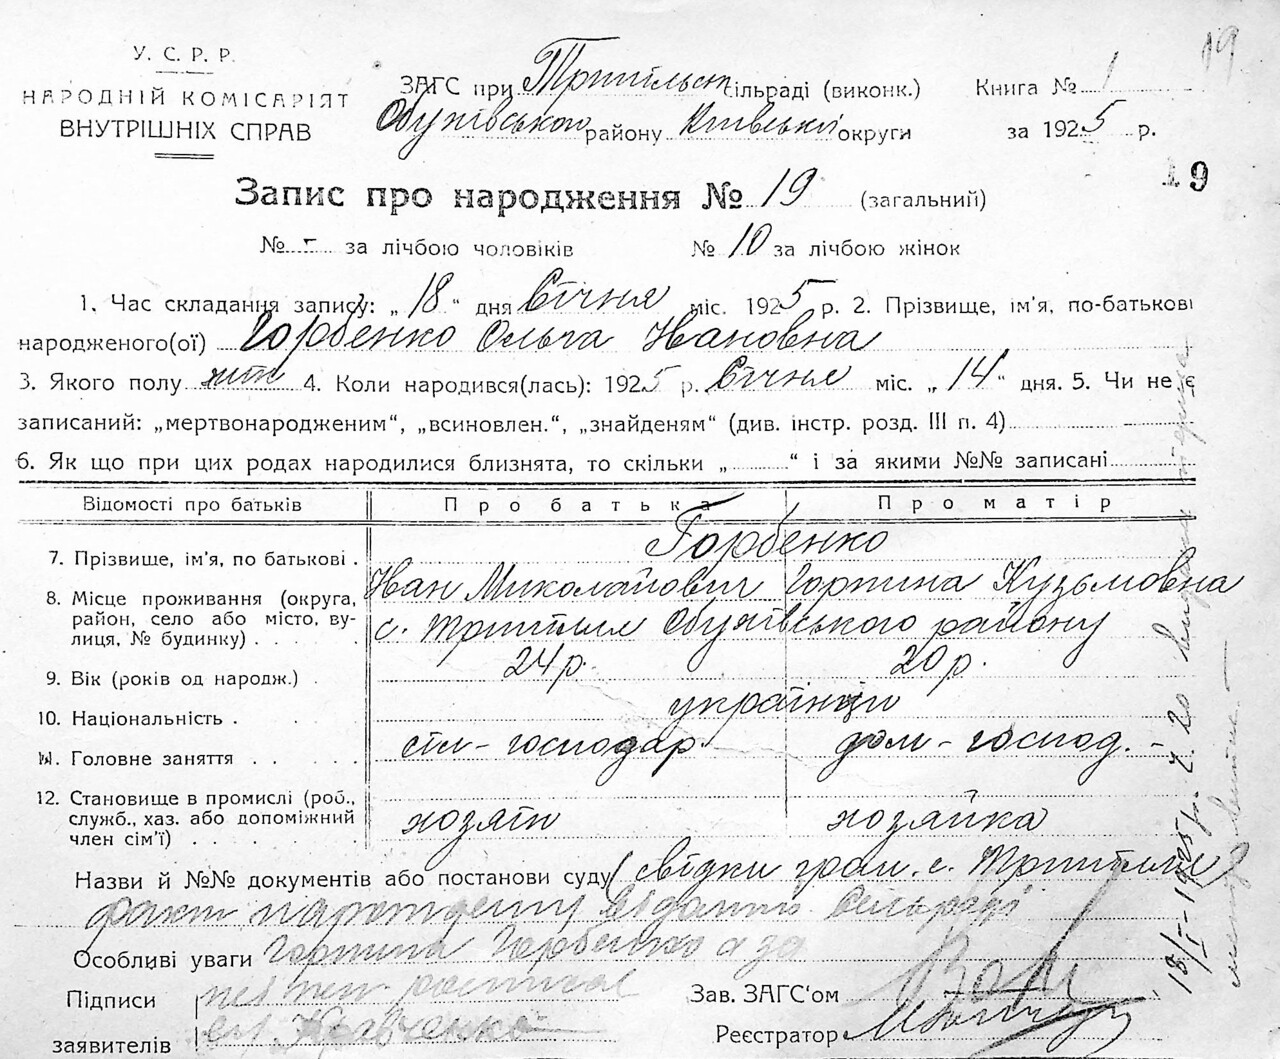 19
У. С. Р. Р.
НАРОДНІЙ КОМІСАРІЯТ
ВНУТРІШНІХ СПРАВ
ЗАГС при Трипільск сільраді (виконк.)
Обухівського району Київської округи
Книга № 1
за 1925 р.
19
Запис про народження № 19 (загальний)
№ - за лічбою чоловіків № 10 за лічбою жінок
1. Час складання запису: „18“ дня Січня міс. 1925 р. 2. Прізвище, ім'я, по-батькові
народженого(ої) Горбенко Ольга Ивановна
3. Якого полу жін 4. Коли народився(лась): 1925 р. Січня міс. „14“ дня. 5. Чи не є
записаний: „мертвонародженим“, „всиновлен.“, „знайденям“ (див. інстр. розд. III п. 4)
6. Як що при цих родах народилися близнята, то скільки „ “ і за якими №№ записані
Відомості про батьків Про батька Про матір
7. Прізвище, ім'я, по батькові . Горбенко
Иван Миколайович Горпина Кузьмовна
8. Місце проживання (округа, район, село або місто, вулиця, № будинку) . . . . с. Трипілля Обухівського району
9. Вік (років од народж.) . 24 р. 20 р.
10. Національність . . . . українци
11. Головне заняття . . . . . сіл-господар. дом-господ. -
12. Становище в промислі (роб., служб., хаз. або допоміжний член сім'ї) . . . . . хозяїн хозяйка
Назви й №№ документів або постанови суду (свідки гром. с. Трипілля)
факт народження
Особливі уваги Горпина Горбенко а за
Підписи
заявителів Кравченко
Зав. ЗАГС'ом
Реєстратор
18/I-1925 р. ч. 20